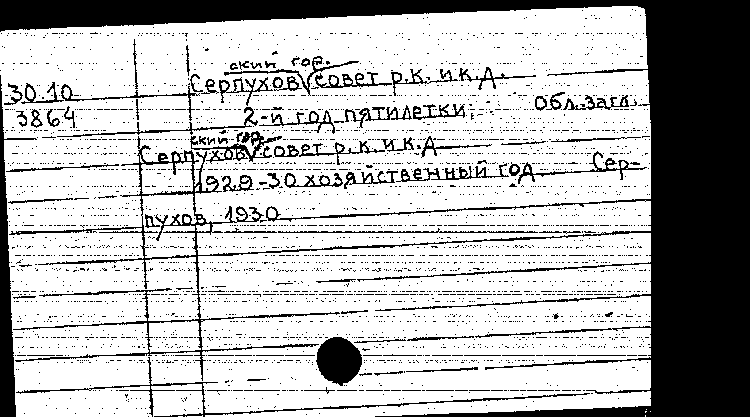 ский гор.
30.10 Серпухов совет р.к. и к.д.
3864 2-й год пятилетки. Обл. загл.
ский гор.
Серпухов совет р.к. и к.д
1929-30 хозяйственный год Сер-
пухов, 1930